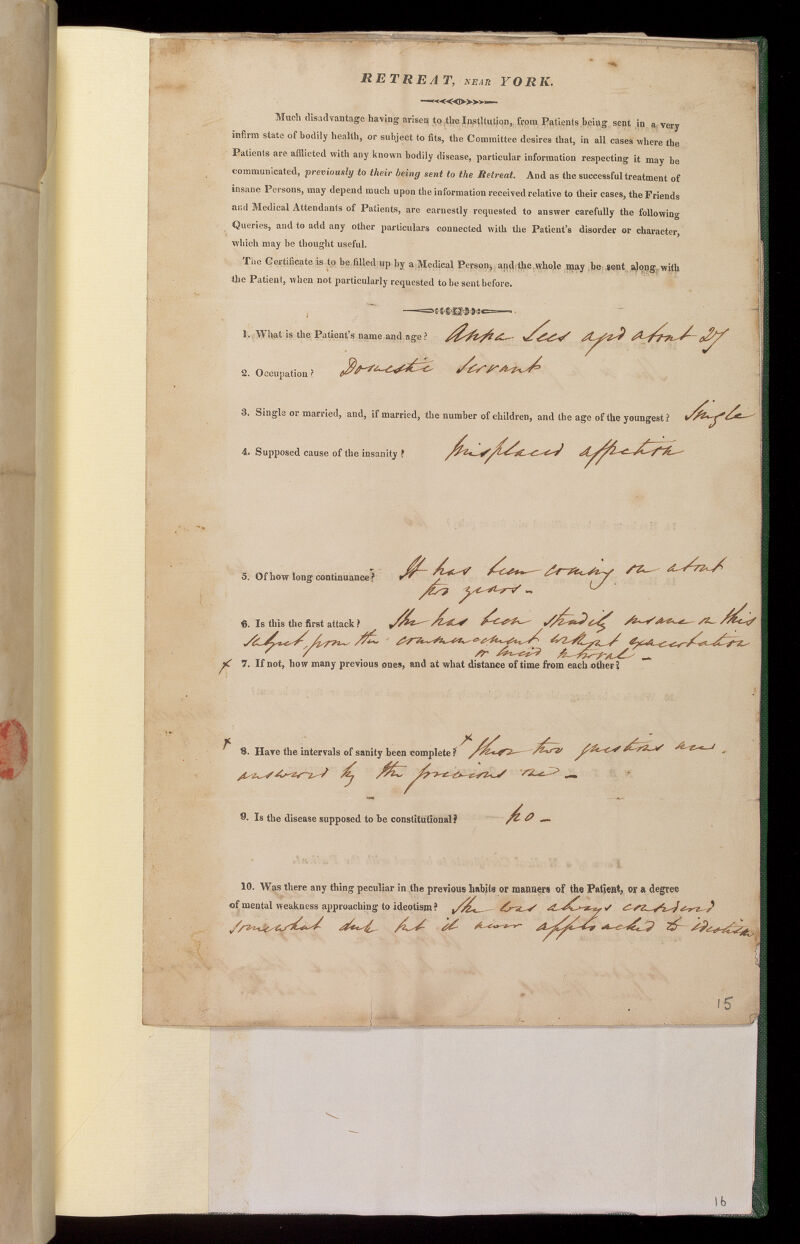 RETREAT, NEAR YORK.
Much disadvantage having arisen to the Institution, from Patients being sent in a very
infirm state of bodily health, or subject to fits, the Committee desires that, in all cases where the
Patients are afflicted with any known bodily disease, particular information respecting it may be
communicated, previously to their being sent to the Retreat. And as the successful treatment of
insane Persons, may depend much upon the information received relative to their cases, the Friends
and Medical Attendants of Patients, are earnestly requested to answer carefully the following
Queries, and to add any other particulars connected with the Patient's disorder or character,
which may be thought useful.
The Certificate is to be filled up by a Medical Person, and the whole may be sent along with
the Patient, when not particularly requested to be sent before.
1. What is the Patient's name and age? Anna Lees aged about 27
2. Occupation? Domestic Servant
3. Single or married, and, if married, the number of children, and the age of the youngest? Single
4. Supposed cause of the insanity? Misplaced affection
5. Of how long continuance? It has been coming on about
two years -
6. Is this the first attack? She has been steadily insane on this
subject from the commencement without exacerbation
or lucid interval -
x 7. If not, how many previous ones, and at what distance of time from each other?
x 8. Have the intervals of sanity been complete? x These two questions are
answered by the previous one -
9. Is the disease supposed to be constitutional? No -
10. Was there any thing peculiar in the previous habits or manners of the Patient, or a degree
of mental weakness approaching to ideotism? She was always considered
somewhat dull but it never approached to ideotism
15
16